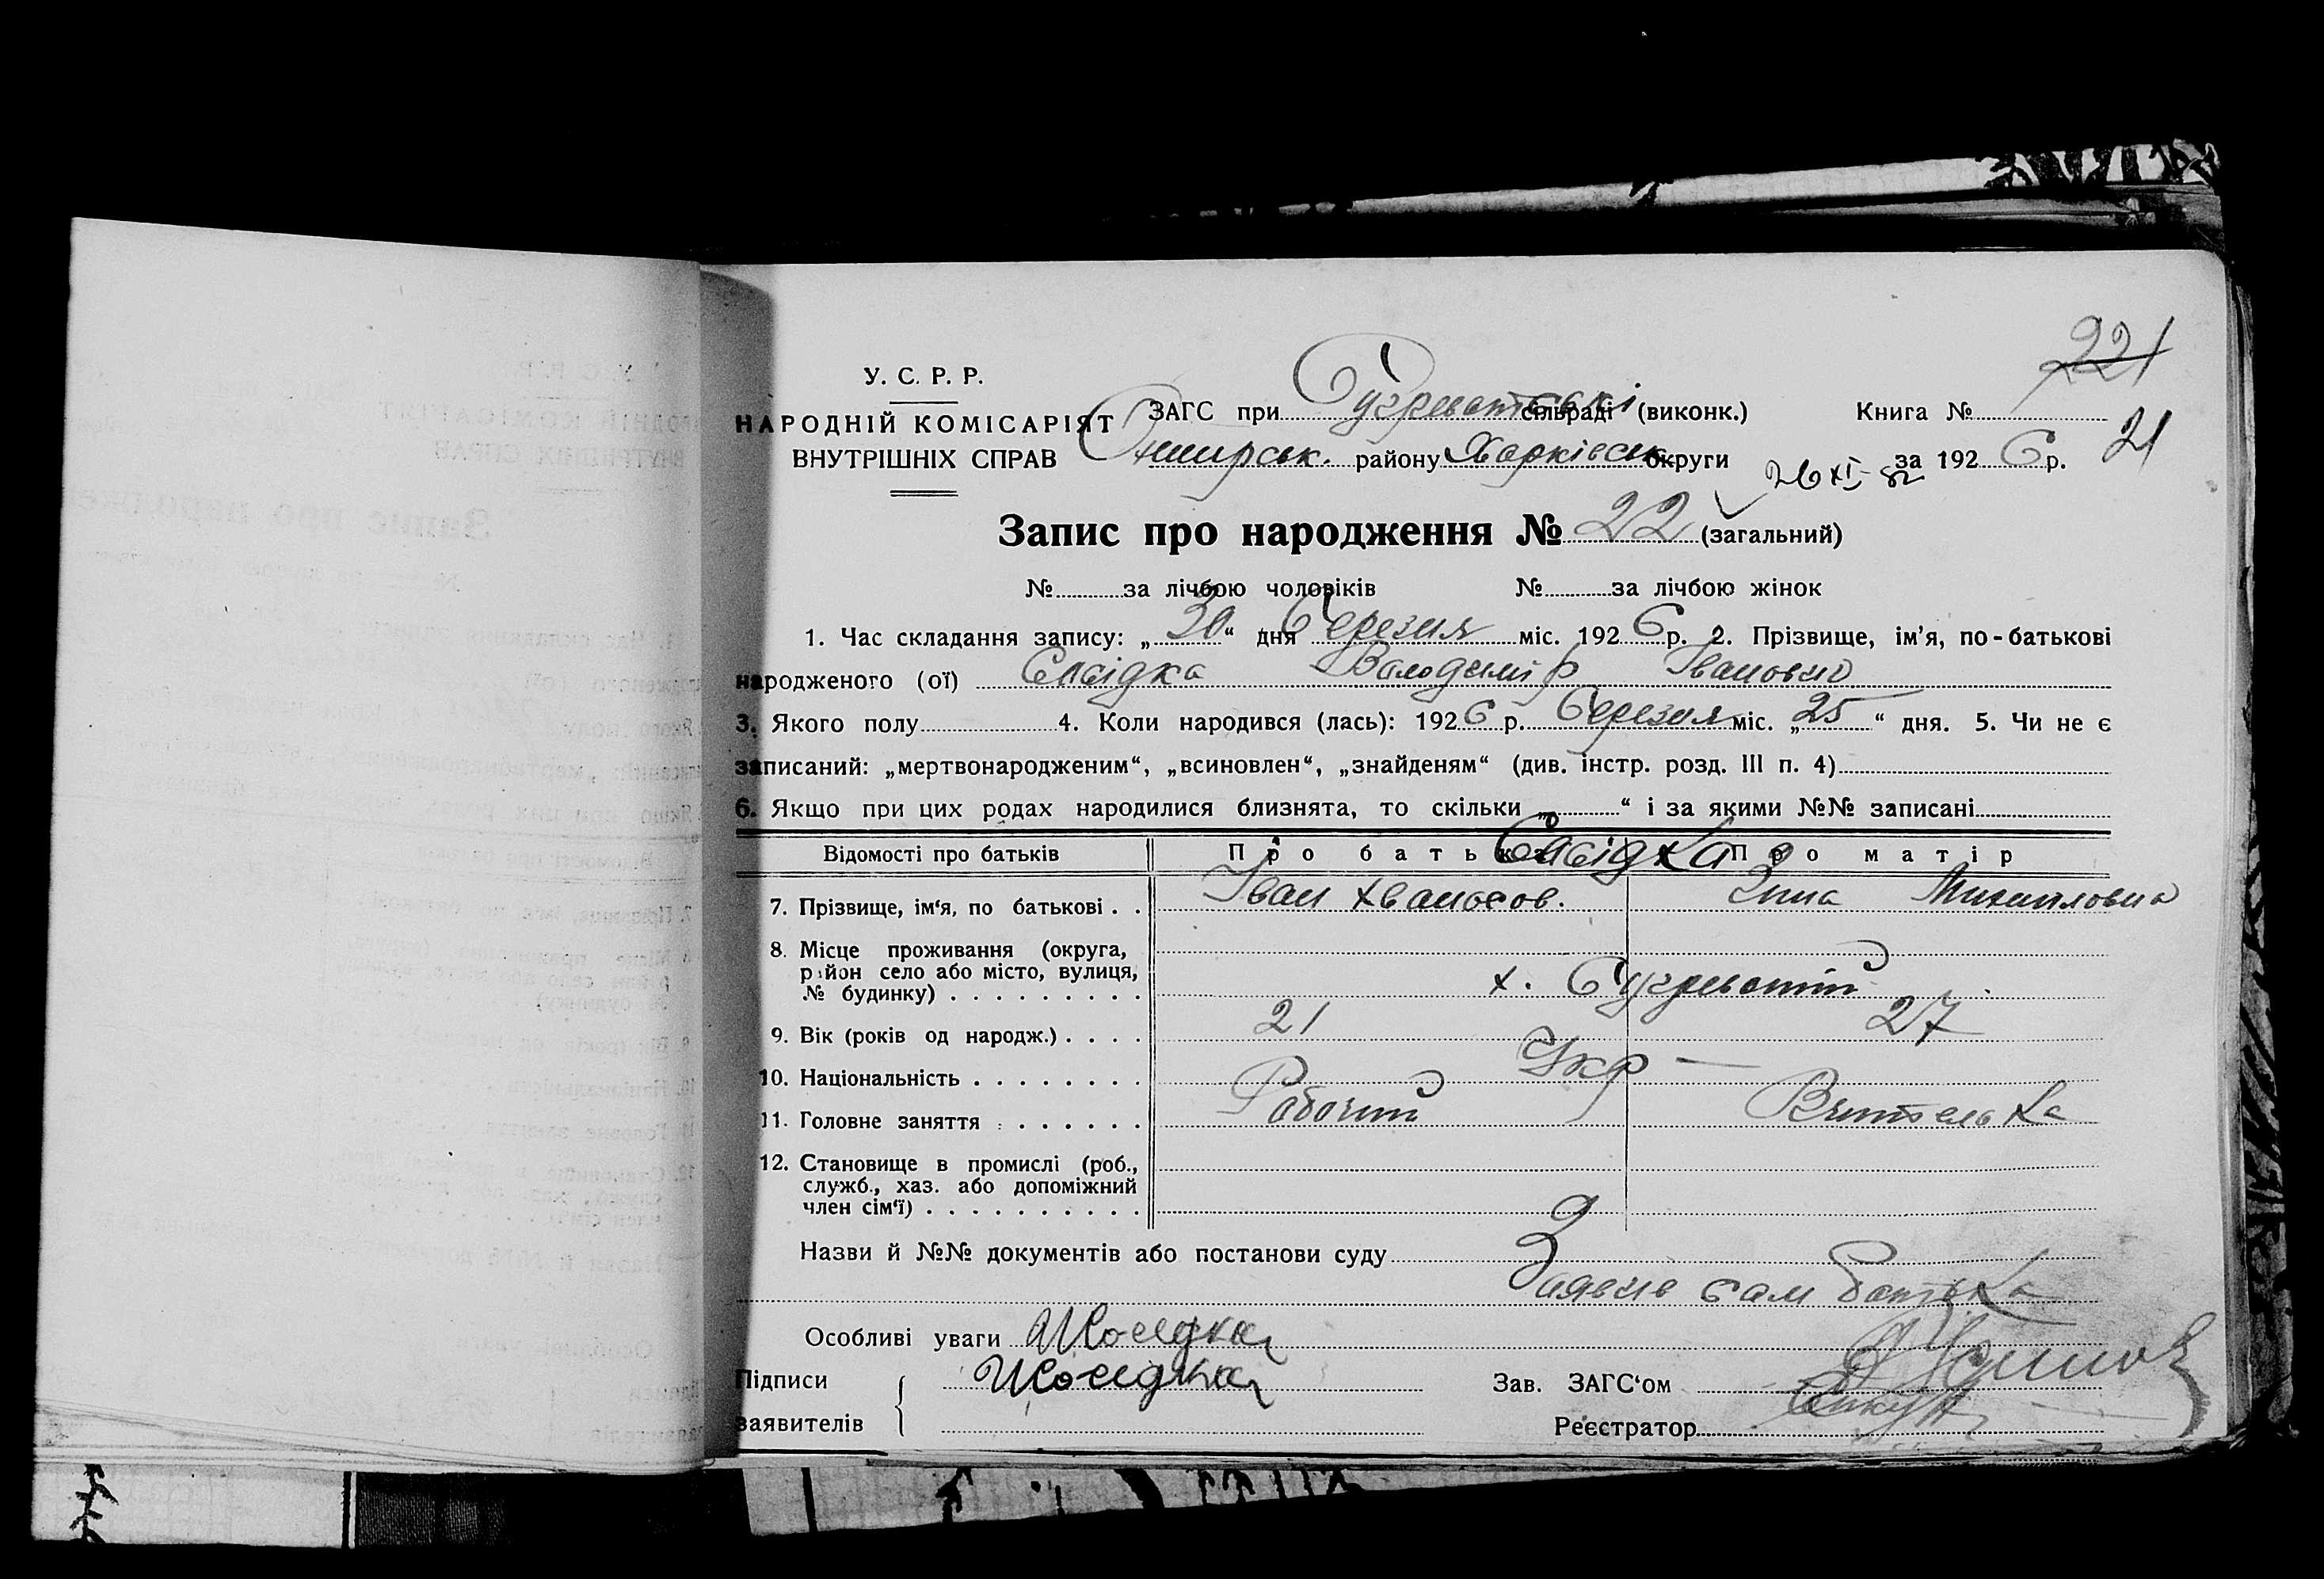 221
У. С. Р. Р.
НАРОДНІЙ КОМІСАРІЯТ
ВНУТРІШНІХ СПРАВ
ЗАГС при сільраді (виконк.) Книга №
району Харківськ. округи за 1926 р. 21
26 XI-82
Запис про народження № 22 (загальний)
№ за лічбою чоловіків № за лічбою жінок
1. Час складання запису: „30“ дня березня міс. 1926 р. 2. Прізвище, ім’я, по-батькові
народженого (ої) Володимір Іванович
3. Якого полу 4. Коли народився (лась): 1926 р. березня міс. „25“ дня. 5. Чи не є
записаний: „мертвонародженим“, „всиновлен“, „знайденям“ (див. інстр. розд. III п. 4)
6. Якщо при цих родах народилися близнята, то скільки „ “ і за якими №№ записані
Відомості про батьків Про батька Про матір
7. Прізвище, ім‘я, по батькові . . Іван Михайловна
8. Місце проживання (округа,
район село або місто, вулиця,
№ будинку) . . . . . . . . . х.
9. Вік (років од народж.) . . . . 21 27
10. Національність . . . . . . . . Укр —
11. Головне заняття . . . . . . . Робочий Вчителька
12. Становище в промислі (роб.,
служб., хаз. або допоміжний
член сім‘ї) . . . . . . . . . .
Назви й №№ документів або постанови суду
Заявив сам батька
Особливі уваги
Підписи
заявителів
Зав. ЗАГС‘ом
Реєстратор